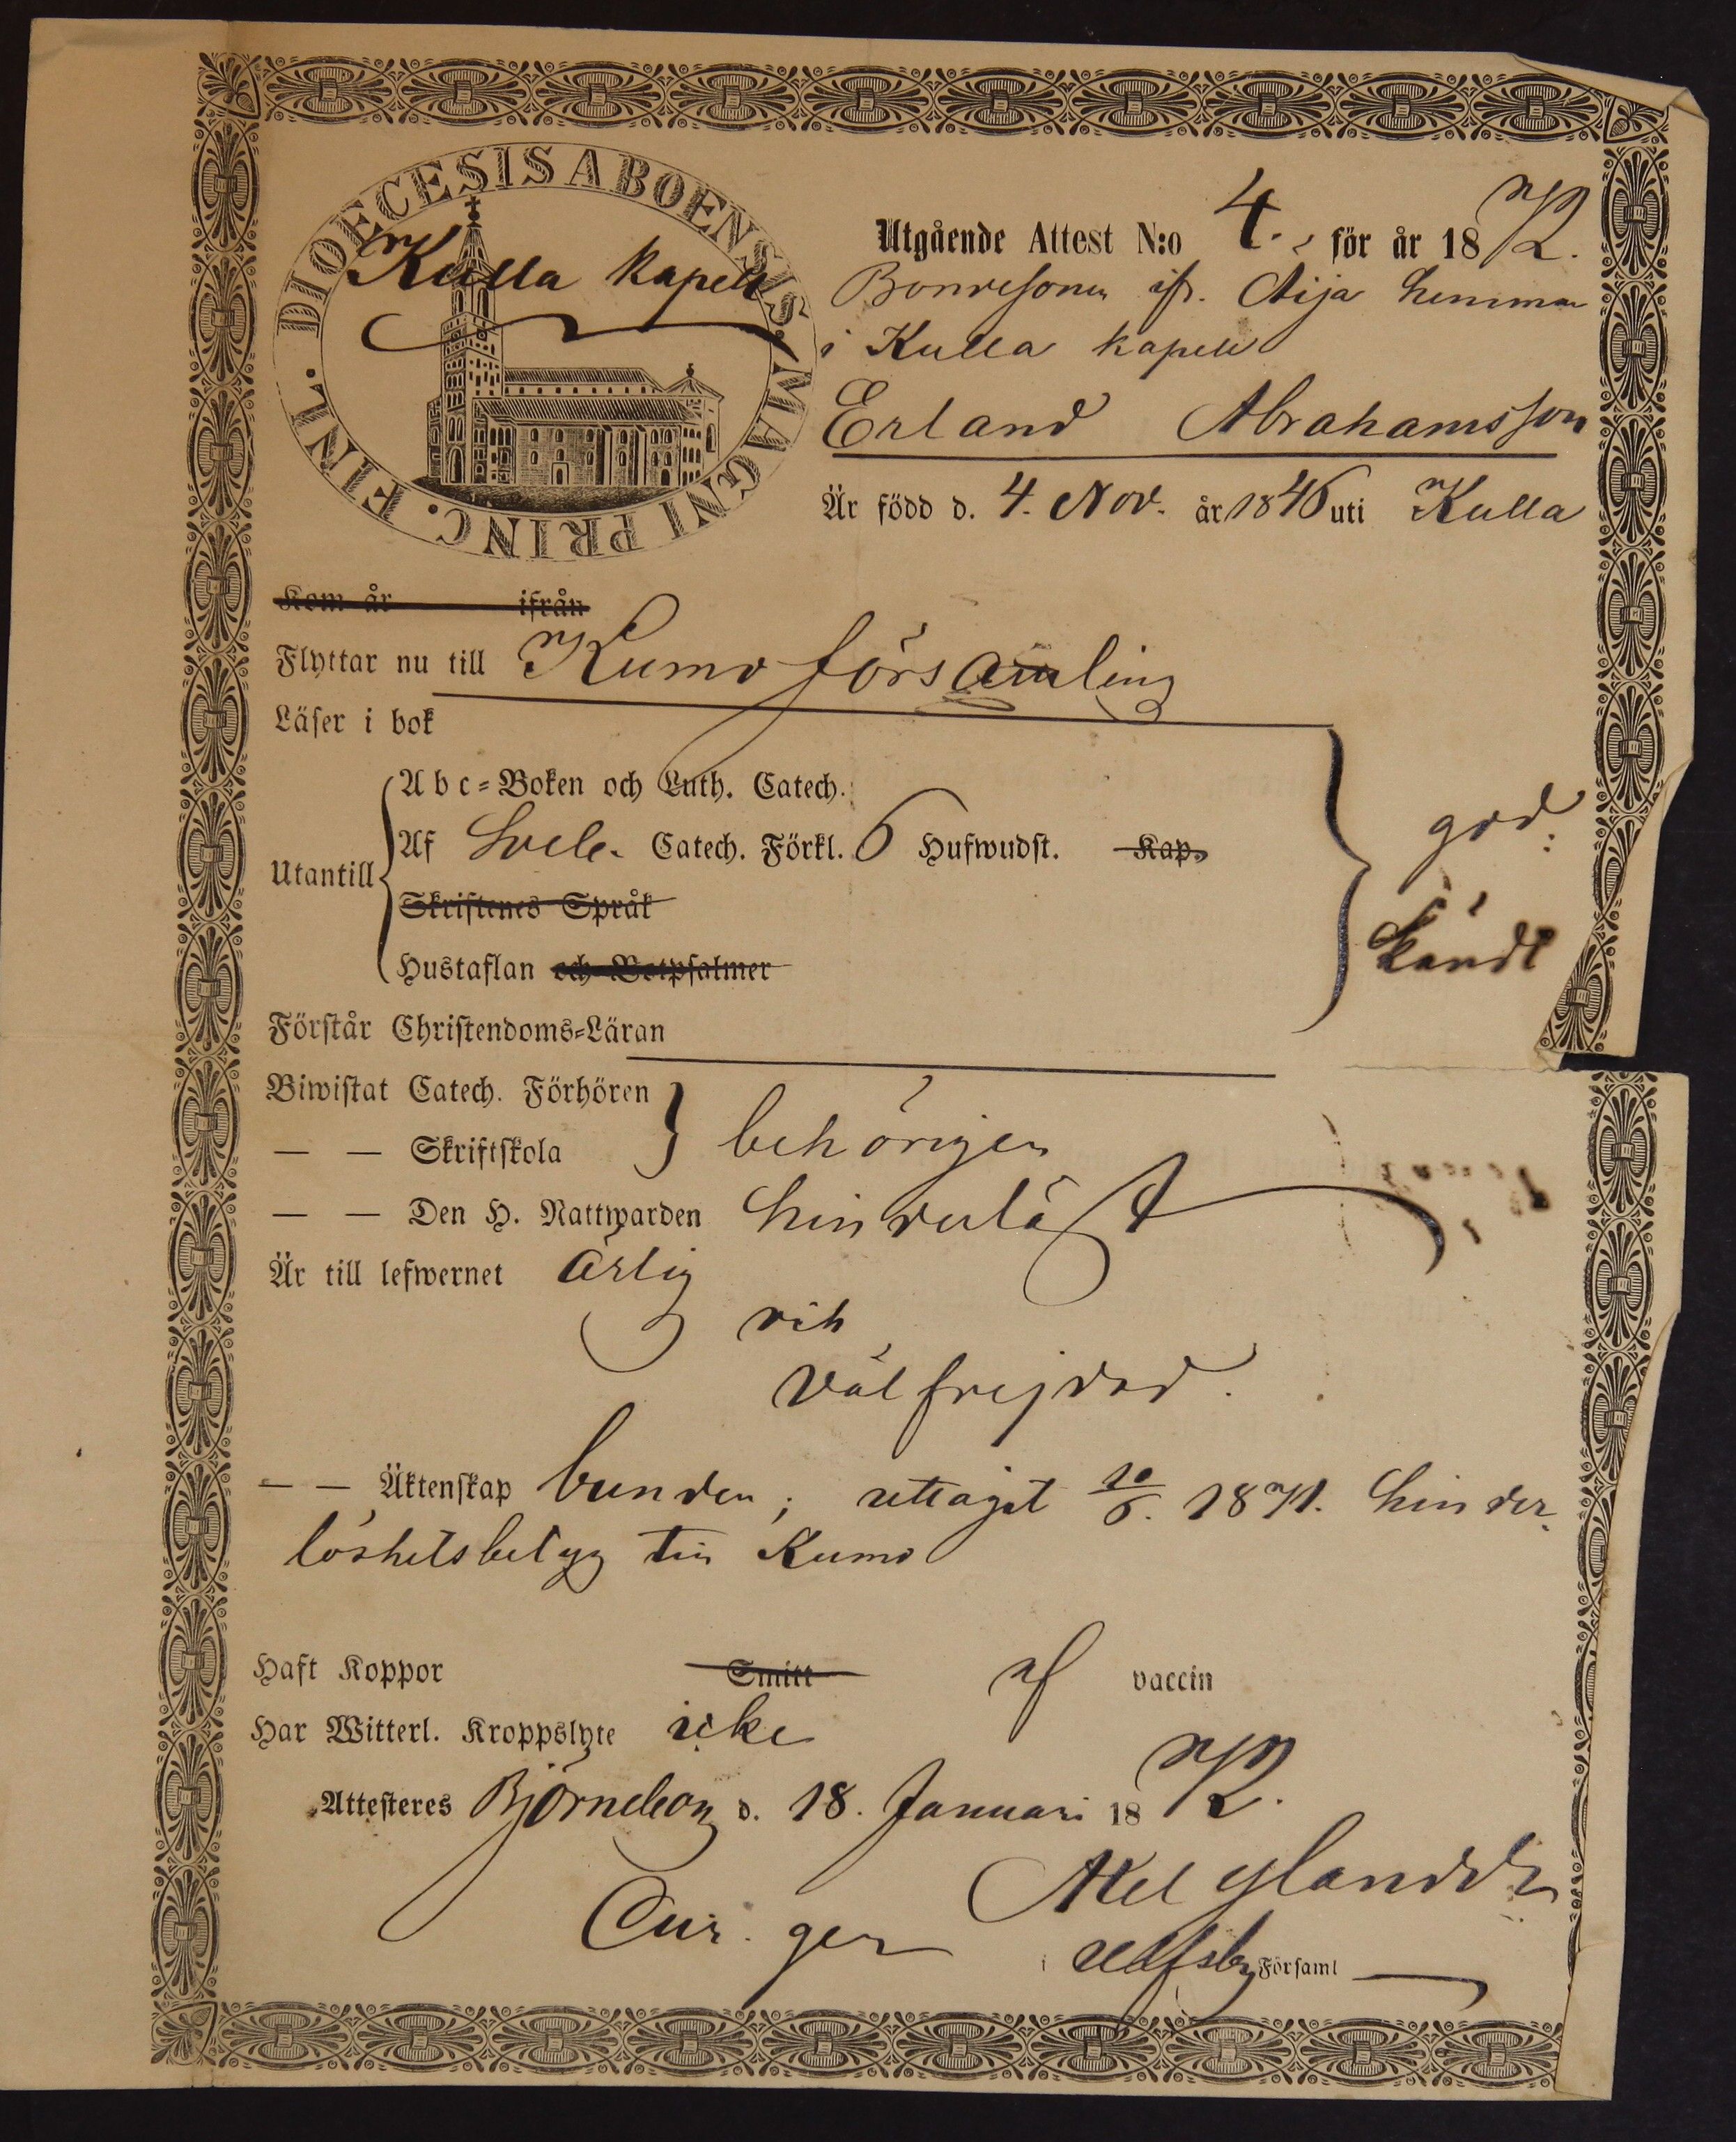 DIOECESIS ABOENSIS. MAGNI PRINC. FINL.
Kulla kapell
Utgående Attest N:o 4. för år 1872.
Bondesonen ifr. Äijä hemman
i Kulla kapell
Erland Abrahamsson
Är född d. 4. Nov. år 1846 uti Kulla
Kom år ifrån
Flyttar nu till Kumo församling
Läser i bok
Abc-Boken och Luth. Catech.
Utantill Af Sveb. Catech. Förkl. 6 Hufwudst. Kap.
god:
Skriftenes Språk
kändt
Hustaflan och Botpsalmer
Förstår Christendoms-Läran
Biwistat Catech. Förhören
— — Skriftskola behörigen
— — Den H. Nattwarden
Är till lefwernet ärlig
och
välfrejdad.
— — Äktenskap bunden; uttagit 10/6. 1871. hinder
löshetsbetyg till Kumo
Haft Koppor Smitt af vaccin
Har Witterl. Kroppslyte icke
Attesteres Björneborg d. 18. Januari 1872.
Axel Ylander
i Ulfsby Församl